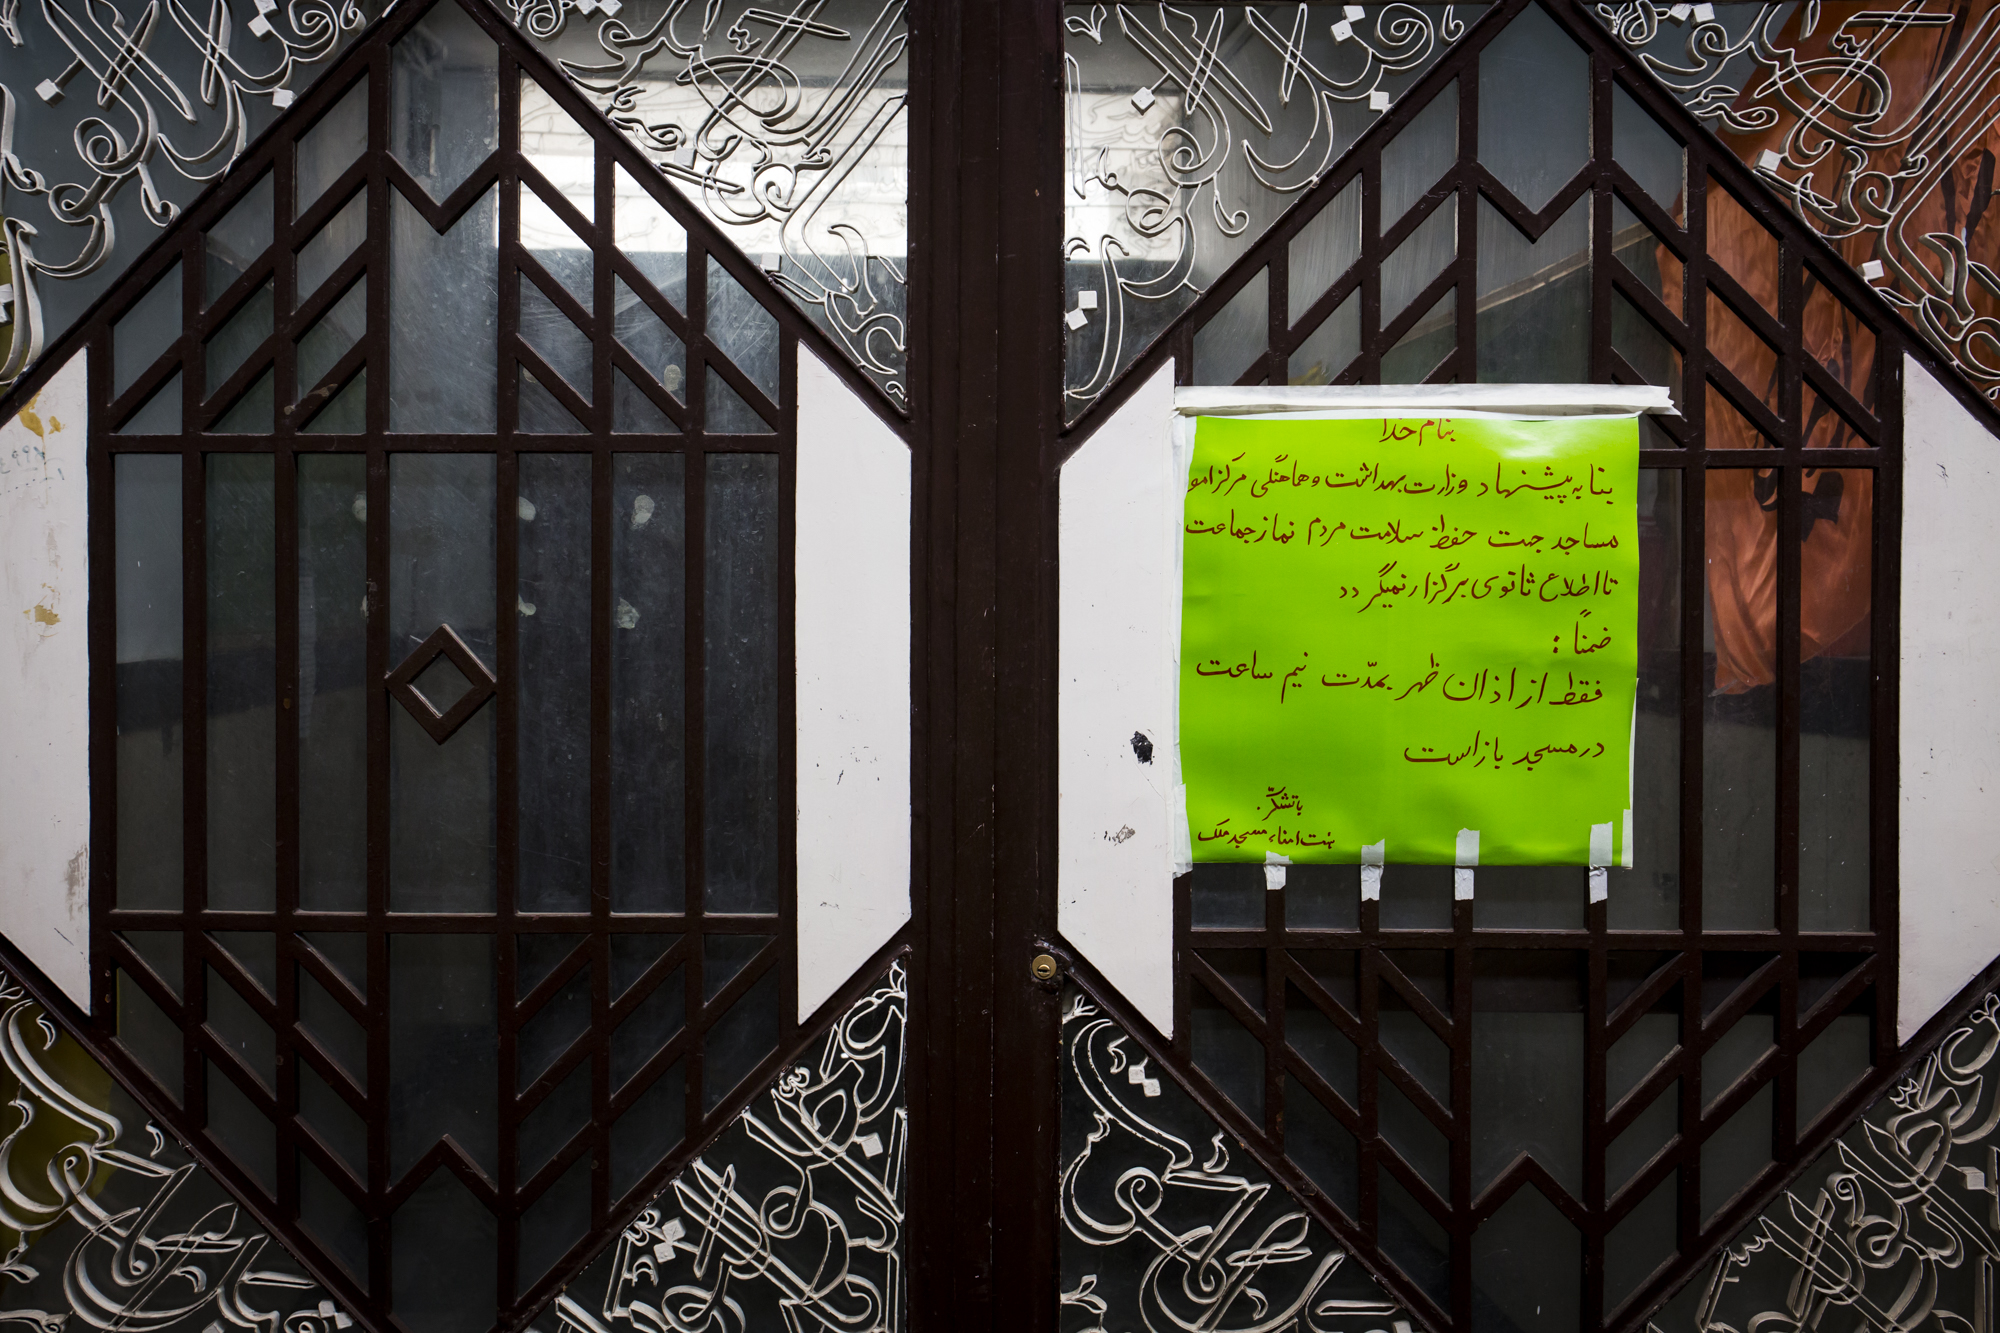 بنام خدا
بنا به پیشنهاد وزارت بهداشت و هماهنگی مرکز امو
مساجد جهت حفظ سلامت مردم نماز جماعت
تا اطلاع ثانوی برگزار نمیگردد
ضمناً :
فقط از اذان ظهر بمدّت نیم ساعت
در مسجد باز است
با تشکّر
هیئت امناء مسجد ملک